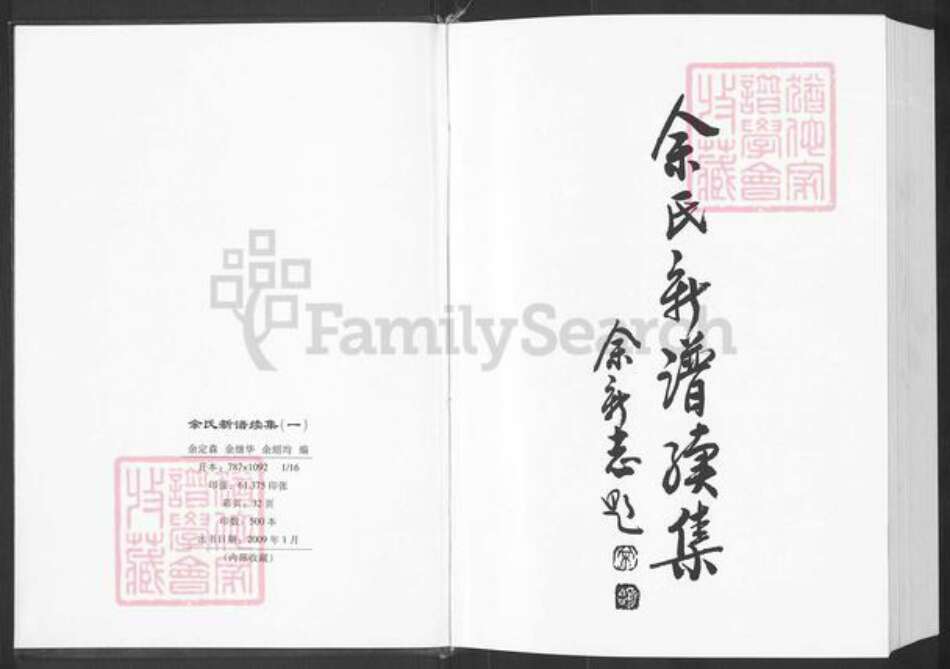 余氏新谱续集(一)
余定森 余继华 余绍均 编
开本：787×1092 1/16
印张：61.375印张
彩页：32页
印数：500本
出书日期：2009年1月
(内部收藏)
猶他家
譜學會
收藏
FamilySearch
余氏新譜續集
余新志题
猶他家
譜學會
收藏